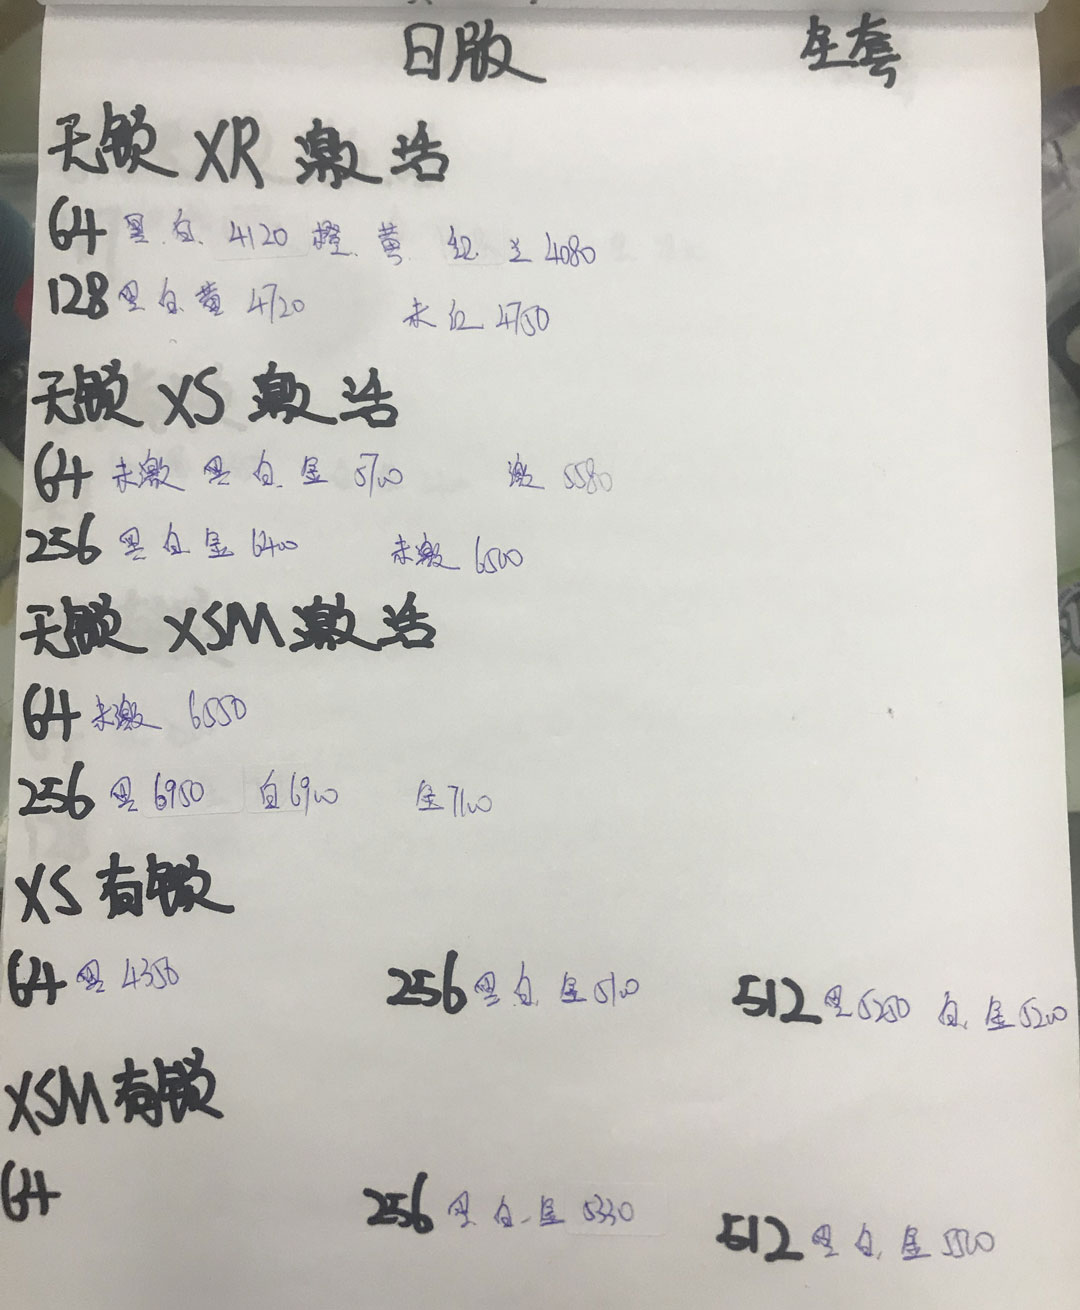 日版 全套
无锁 XR 激活
64 黑.白. 4120 橙.黄 红. 兰 4080
128 黑白.黄 4720 未红 4750
无锁 XS 激活
64 未激 黑白.金 5700 激 5580
256 黑白金 6400 未激 6500
无锁 XSM 激活
64 未激 6550
256 黑 6950 白 6900 金 7100
XS 有锁
64 黑 4350 256 黑.白.金 5100 512 黑 5250 白.金 5200
XSM 有锁
64 256 黑.白.金 5330 512 黑.白.金 5500